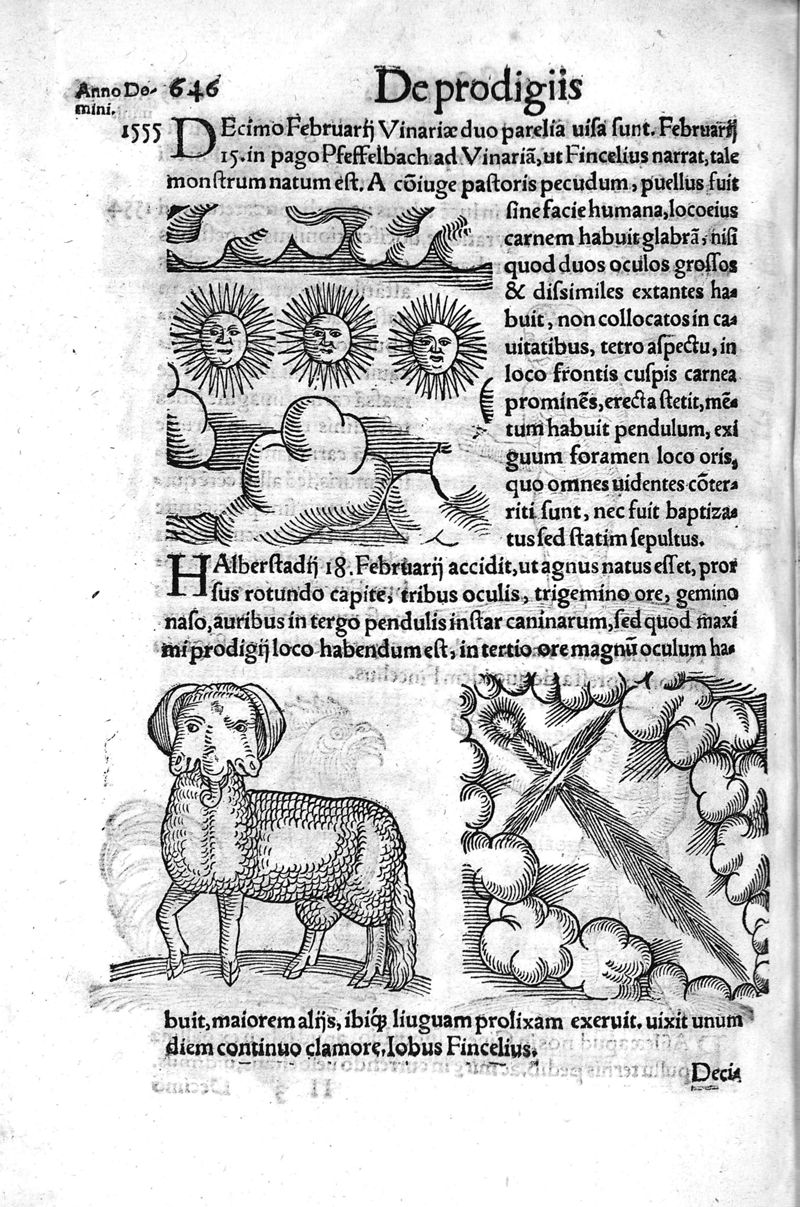 Anno Do- 646 De prodigiis
mini.
1555 DEcimo Februarij Vinariæ duo parelia uisa sunt. Februarij
15. in pago Pfeffelbach ad Vinariã, ut Fincelius narrat, tale
monstrum natum est. A cõiuge pastoris pecudum, puellus fuit
sine facie humana, loco eius
carnem habuit glabrã, nisi
quod duos oculos grossos
& dissimiles extantes ha-
buit, non collocatos in ca-
uitatibus, tetro aspectu, in
loco frontis cuspis carnea
prominẽs, erecta stetit, mẽ-
tum habuit pendulum, exi
guum foramen loco oris,
quo omnes uidentes cõter-
riti sunt, nec fuit baptiza-
tus sed statim sepultus.
HAlberstadij 18. Februarij accidit, ut agnus natus esset, pror
sus rotundo capite, tribus oculis, trigemino ore, gemino
naso, auribus in tergo pendulis instar caninarum, sed quod maxi
mi prodigij loco habendum est, in tertio ore magnũ oculum ha-
buit, maiorem alijs, ibiq́; liuguam prolixam exeruit. uixit unum
diem continuo clamore. Iobus Fincelius.
Deci-